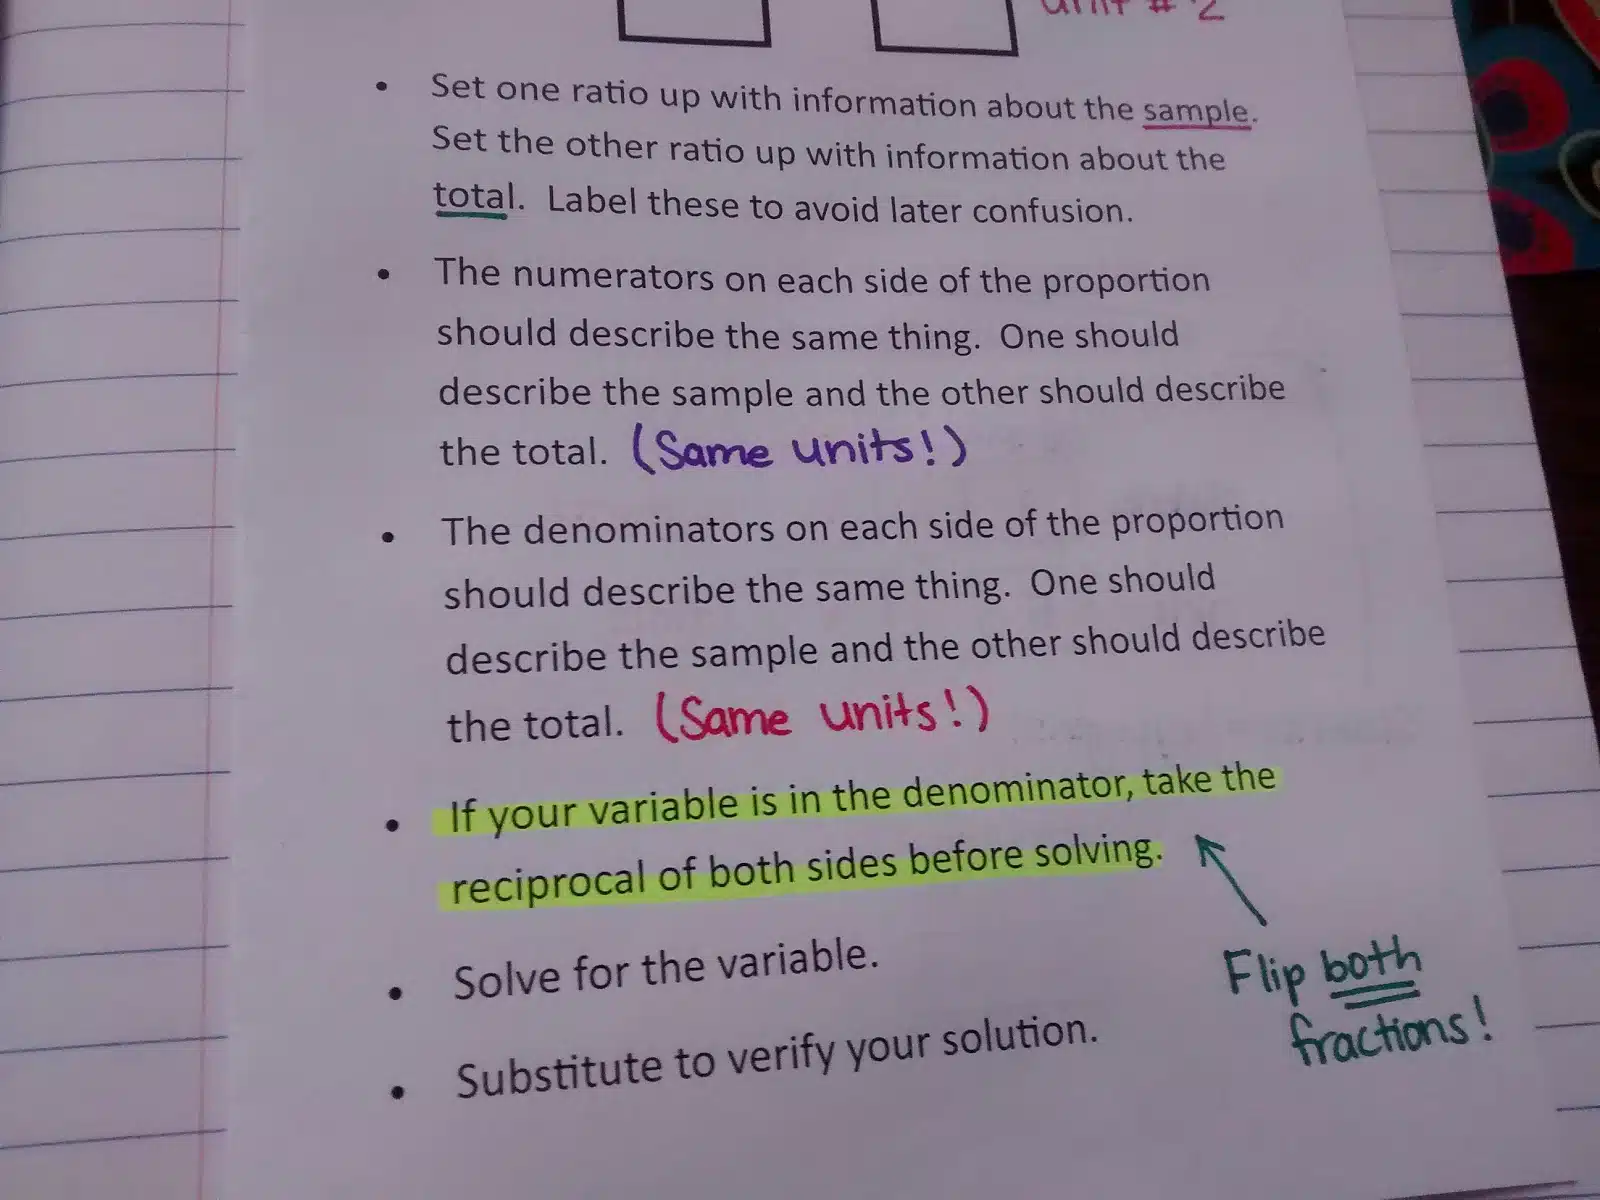 unit # 2
• Set one ratio up with information about the sample.
Set the other ratio up with information about the
total. Label these to avoid later confusion.
• The numerators on each side of the proportion
should describe the same thing. One should
describe the sample and the other should describe
the total. (Same units!)
• The denominators on each side of the proportion
should describe the same thing. One should
describe the sample and the other should describe
the total. (Same units!)
• If your variable is in the denominator, take the
reciprocal of both sides before solving.
Flip both
fractions!
• Solve for the variable.
• Substitute to verify your solution.